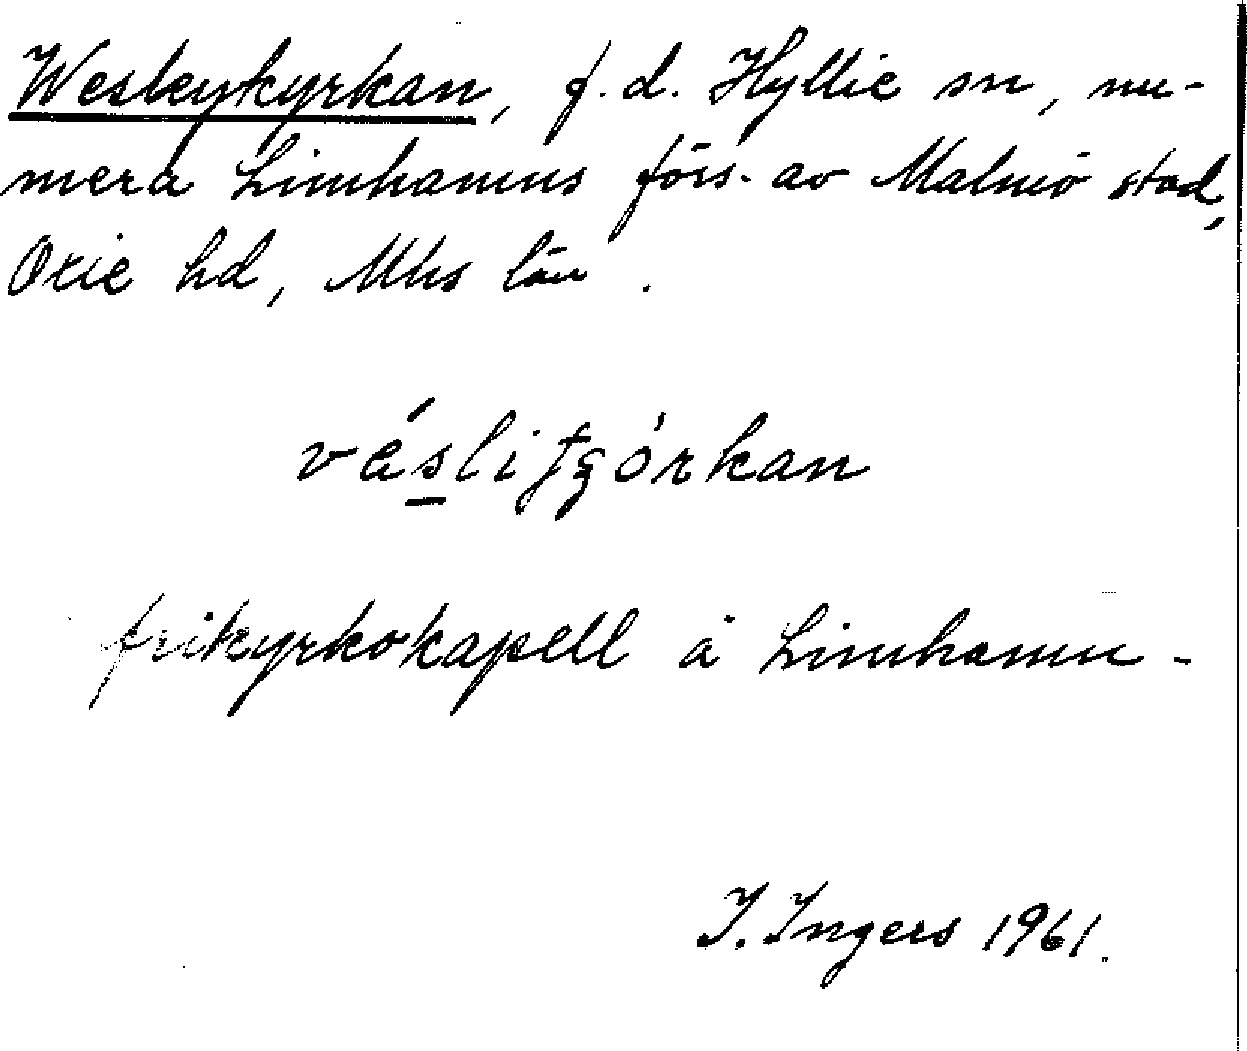 Wesleykyrkan, f.d. Hyllie sn, nu-
mera Limhamns förs. av Malmö stad,
Oxie hd, Mhs län.
frikyrkokapell å Limhamn.
I. Ingers 1961.